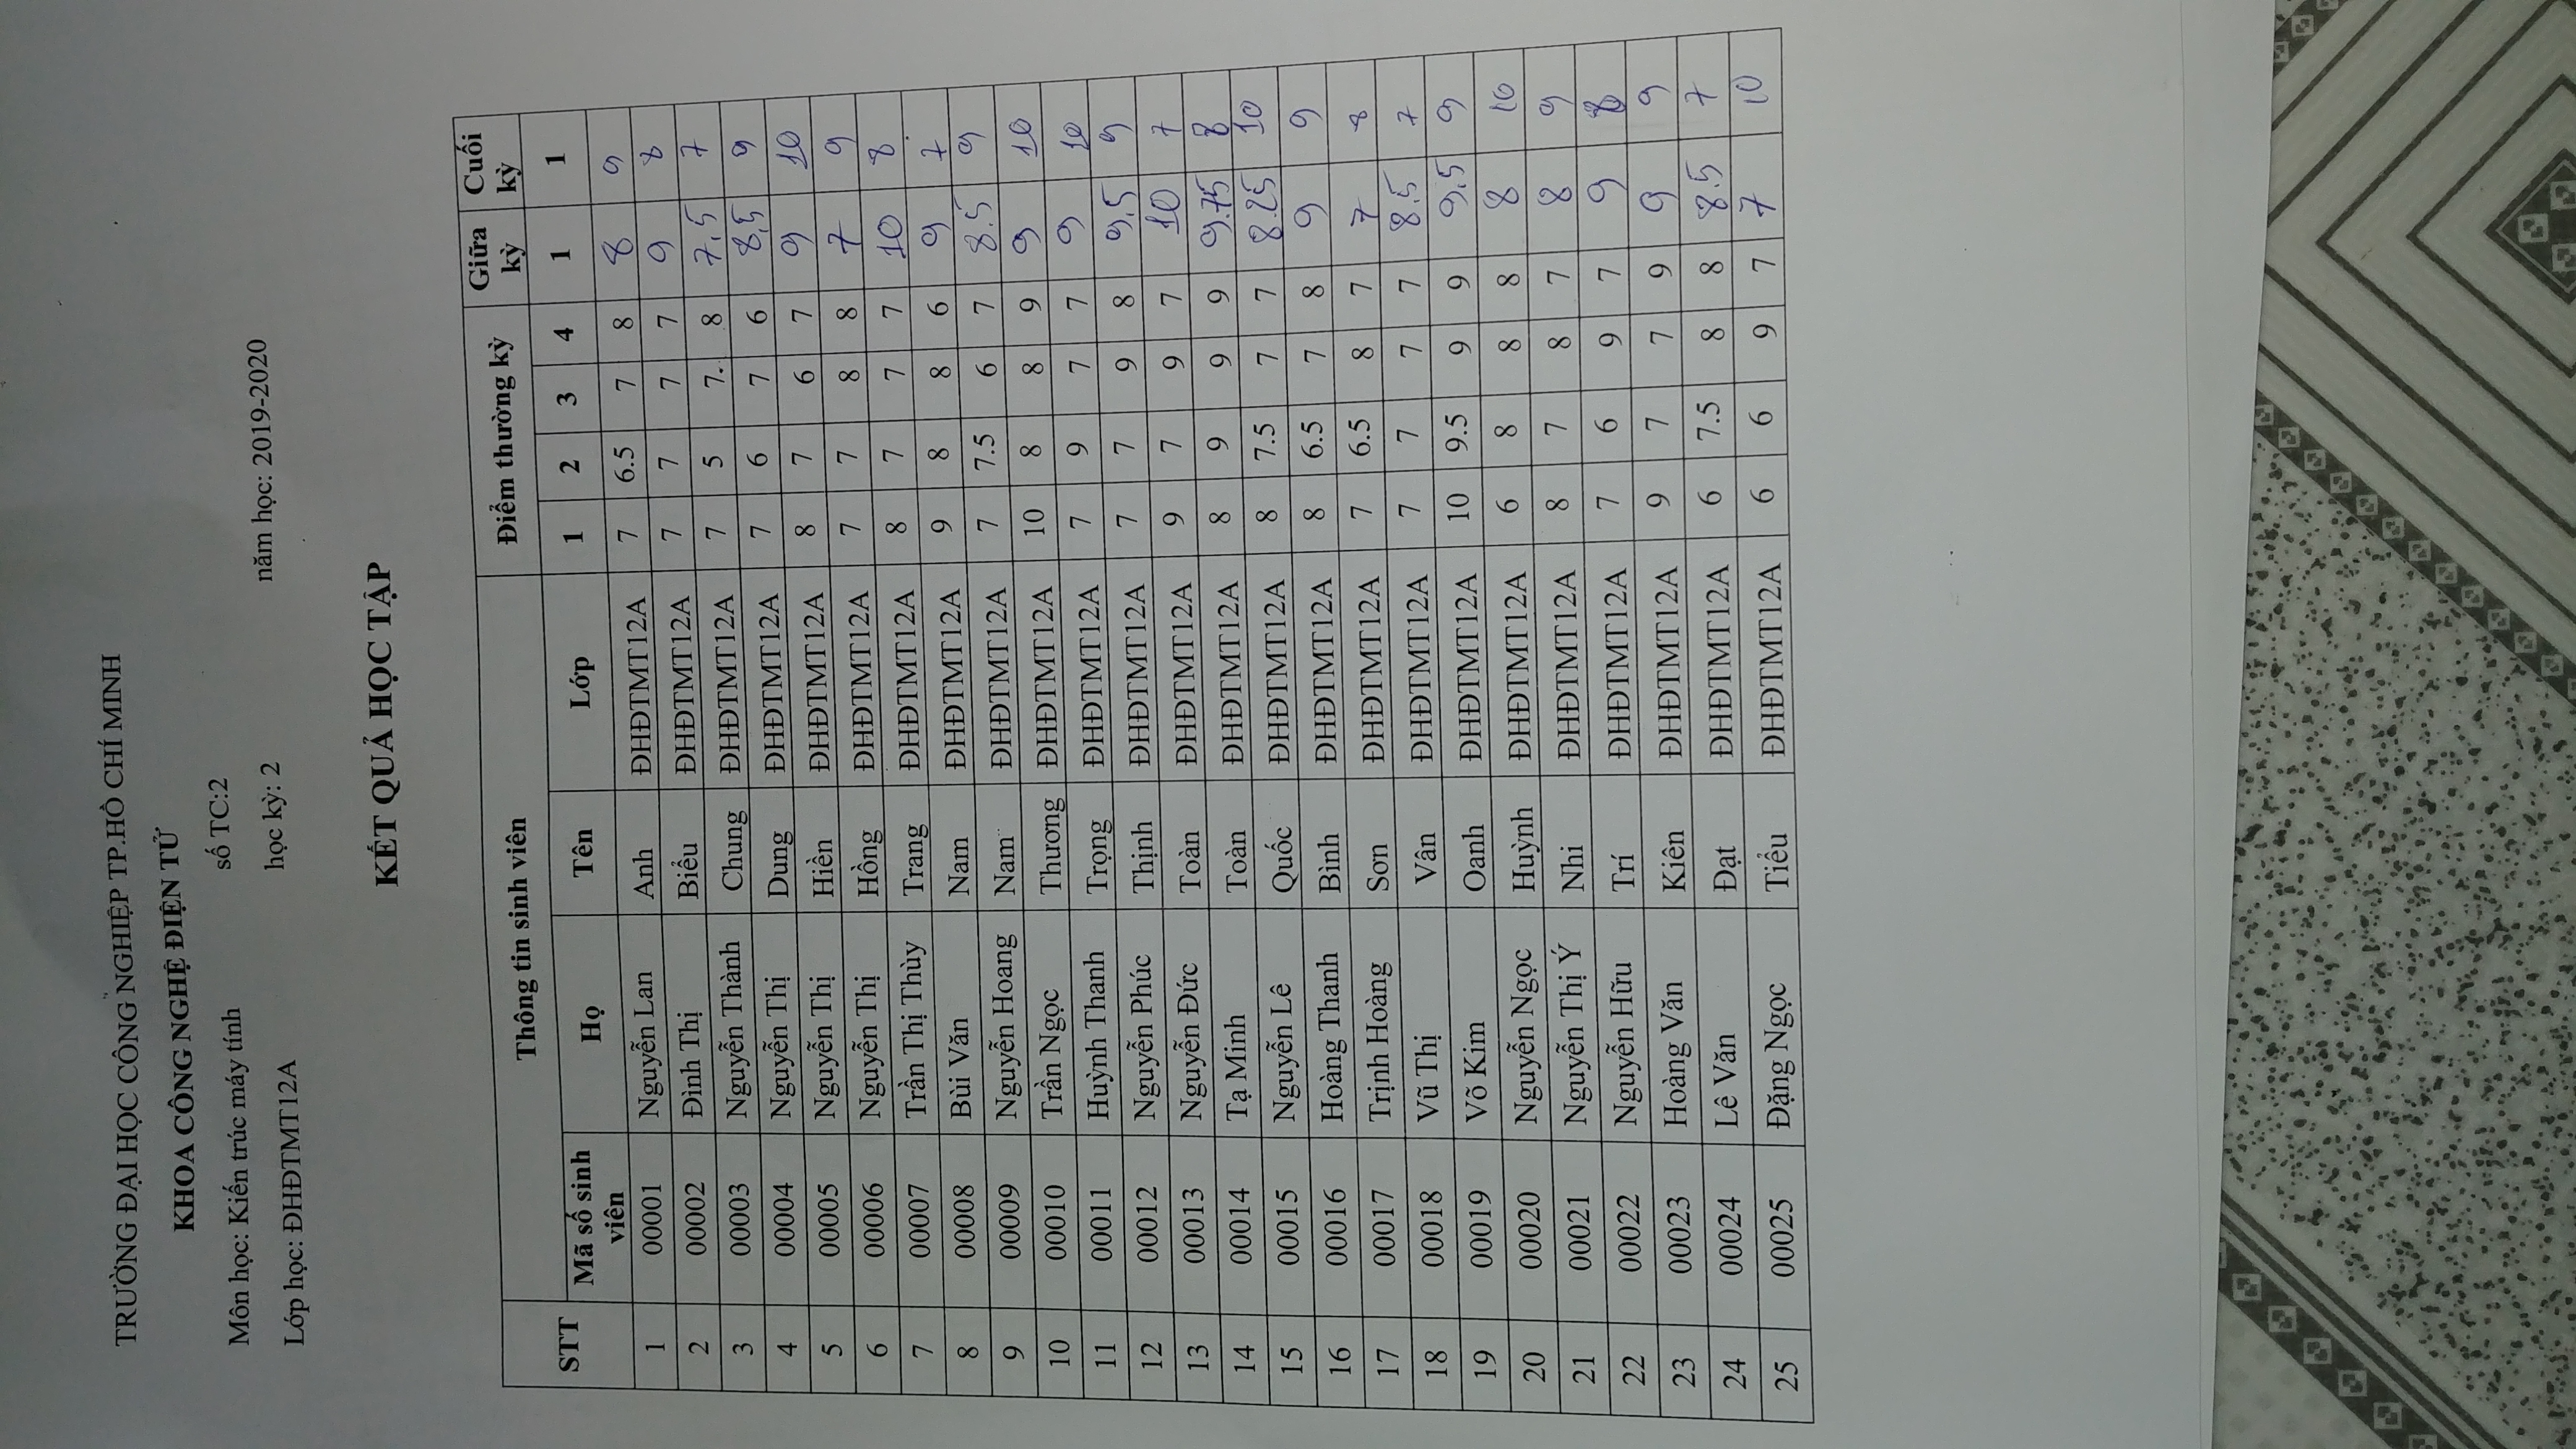 TRƯỜNG ĐẠI HỌC CÔNG NGHIỆP TP.HỒ CHÍ MINH
KHOA CÔNG NGHỆ ĐIỆN TỬ
Môn học: Kiến trúc máy tính số TC:2
Lớp học: ĐHĐTMT12A học kỳ: 2 năm học: 2019-2020
KẾT QUẢ HỌC TẬP
STT Thông tin sinh viên Điểm thường kỳ Giữa kỳ Cuối kỳ
Mã số sinh viên Họ Tên Lớp 1 2 3 4 1 1
1 00001 Nguyễn Lan Anh ĐHĐTMT12A 7 6.5 7 8 8 9
2 00002 Đình Thị Biểu ĐHĐTMT12A 7 7 7 7 9 8
3 00003 Nguyễn Thành Chung ĐHĐTMT12A 7 5 7. 8 7,5 7
4 00004 Nguyễn Thị Dung ĐHĐTMT12A 7 6 7 6 8,5 9
5 00005 Nguyễn Thị Hiền ĐHĐTMT12A 8 7 6 7 9 10
6 00006 Nguyễn Thị Hồng ĐHĐTMT12A 7 7 8 8 7 9
7 00007 Trần Thị Thùy Trang ĐHĐTMT12A 8 7 7 7 10 8
8 00008 Bùi Văn Nam ĐHĐTMT12A 9 8 8 6 9 7
9 00009 Nguyễn Hoang Nam ĐHĐTMT12A 7 7.5 6 7 8.5 9
10 00010 Trần Ngọc Thương ĐHĐTMT12A 10 8 8 9 9 10
11 00011 Huỳnh Thanh Trọng ĐHĐTMT12A 7 9 7 7 9 10
12 00012 Nguyễn Phúc Thịnh ĐHĐTMT12A 7 7 9 8 9,5 9
13 00013 Nguyễn Đức Toàn ĐHĐTMT12A 9 7 9 7 10 7
14 00014 Tạ Minh Toàn ĐHĐTMT12A 8 9 9 9 9.75 8
15 00015 Nguyễn Lê Quốc ĐHĐTMT12A 8 7.5 7 7 8.25 10
16 00016 Hoàng Thanh Bình ĐHĐTMT12A 8 6.5 7 8 9 9
17 00017 Trịnh Hoàng Sơn ĐHĐTMT12A 7 6.5 8 7 7 8
18 00018 Vũ Thị Vân ĐHĐTMT12A 7 7 7 7 8,5 7
19 00019 Võ Kim Oanh ĐHĐTMT12A 10 9.5 9 9 9,5 9
20 00020 Nguyễn Ngọc Huỳnh ĐHĐTMT12A 6 8 8 8 8 10
21 00021 Nguyễn Thị Ý Nhi ĐHĐTMT12A 8 7 8 7 8 9
22 00022 Nguyễn Hữu Trí ĐHĐTMT12A 7 6 9 7 9 8
23 00023 Hoàng Văn Kiên ĐHĐTMT12A 9 7 7 9 9 9
24 00024 Lê Văn Đạt ĐHĐTMT12A 6 7.5 8 8 8.5 7
25 00025 Đặng Ngọc Tiểu ĐHĐTMT12A 6 6 9 7 7 10